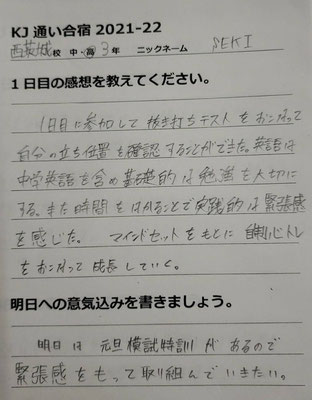 KJ 通い合宿 2021-22
西茨城校 中・高3年 ニックネーム SEKI
1日目の感想を教えてください。
1日目に参加して抜き打ちテストをおこなって
自分の立ち位置を確認することができた。英語は
中学英語を含め基礎的な勉強を大切に
する。また時間をはかることで実践的な緊張感
を感じた。 マインドセットをもとに 自制心トレ
をおこなって成長していく。
明日への意気込みを書きましょう。
明日は 元旦模試特訓があるので
緊張感をもって取り組んでいきたい。